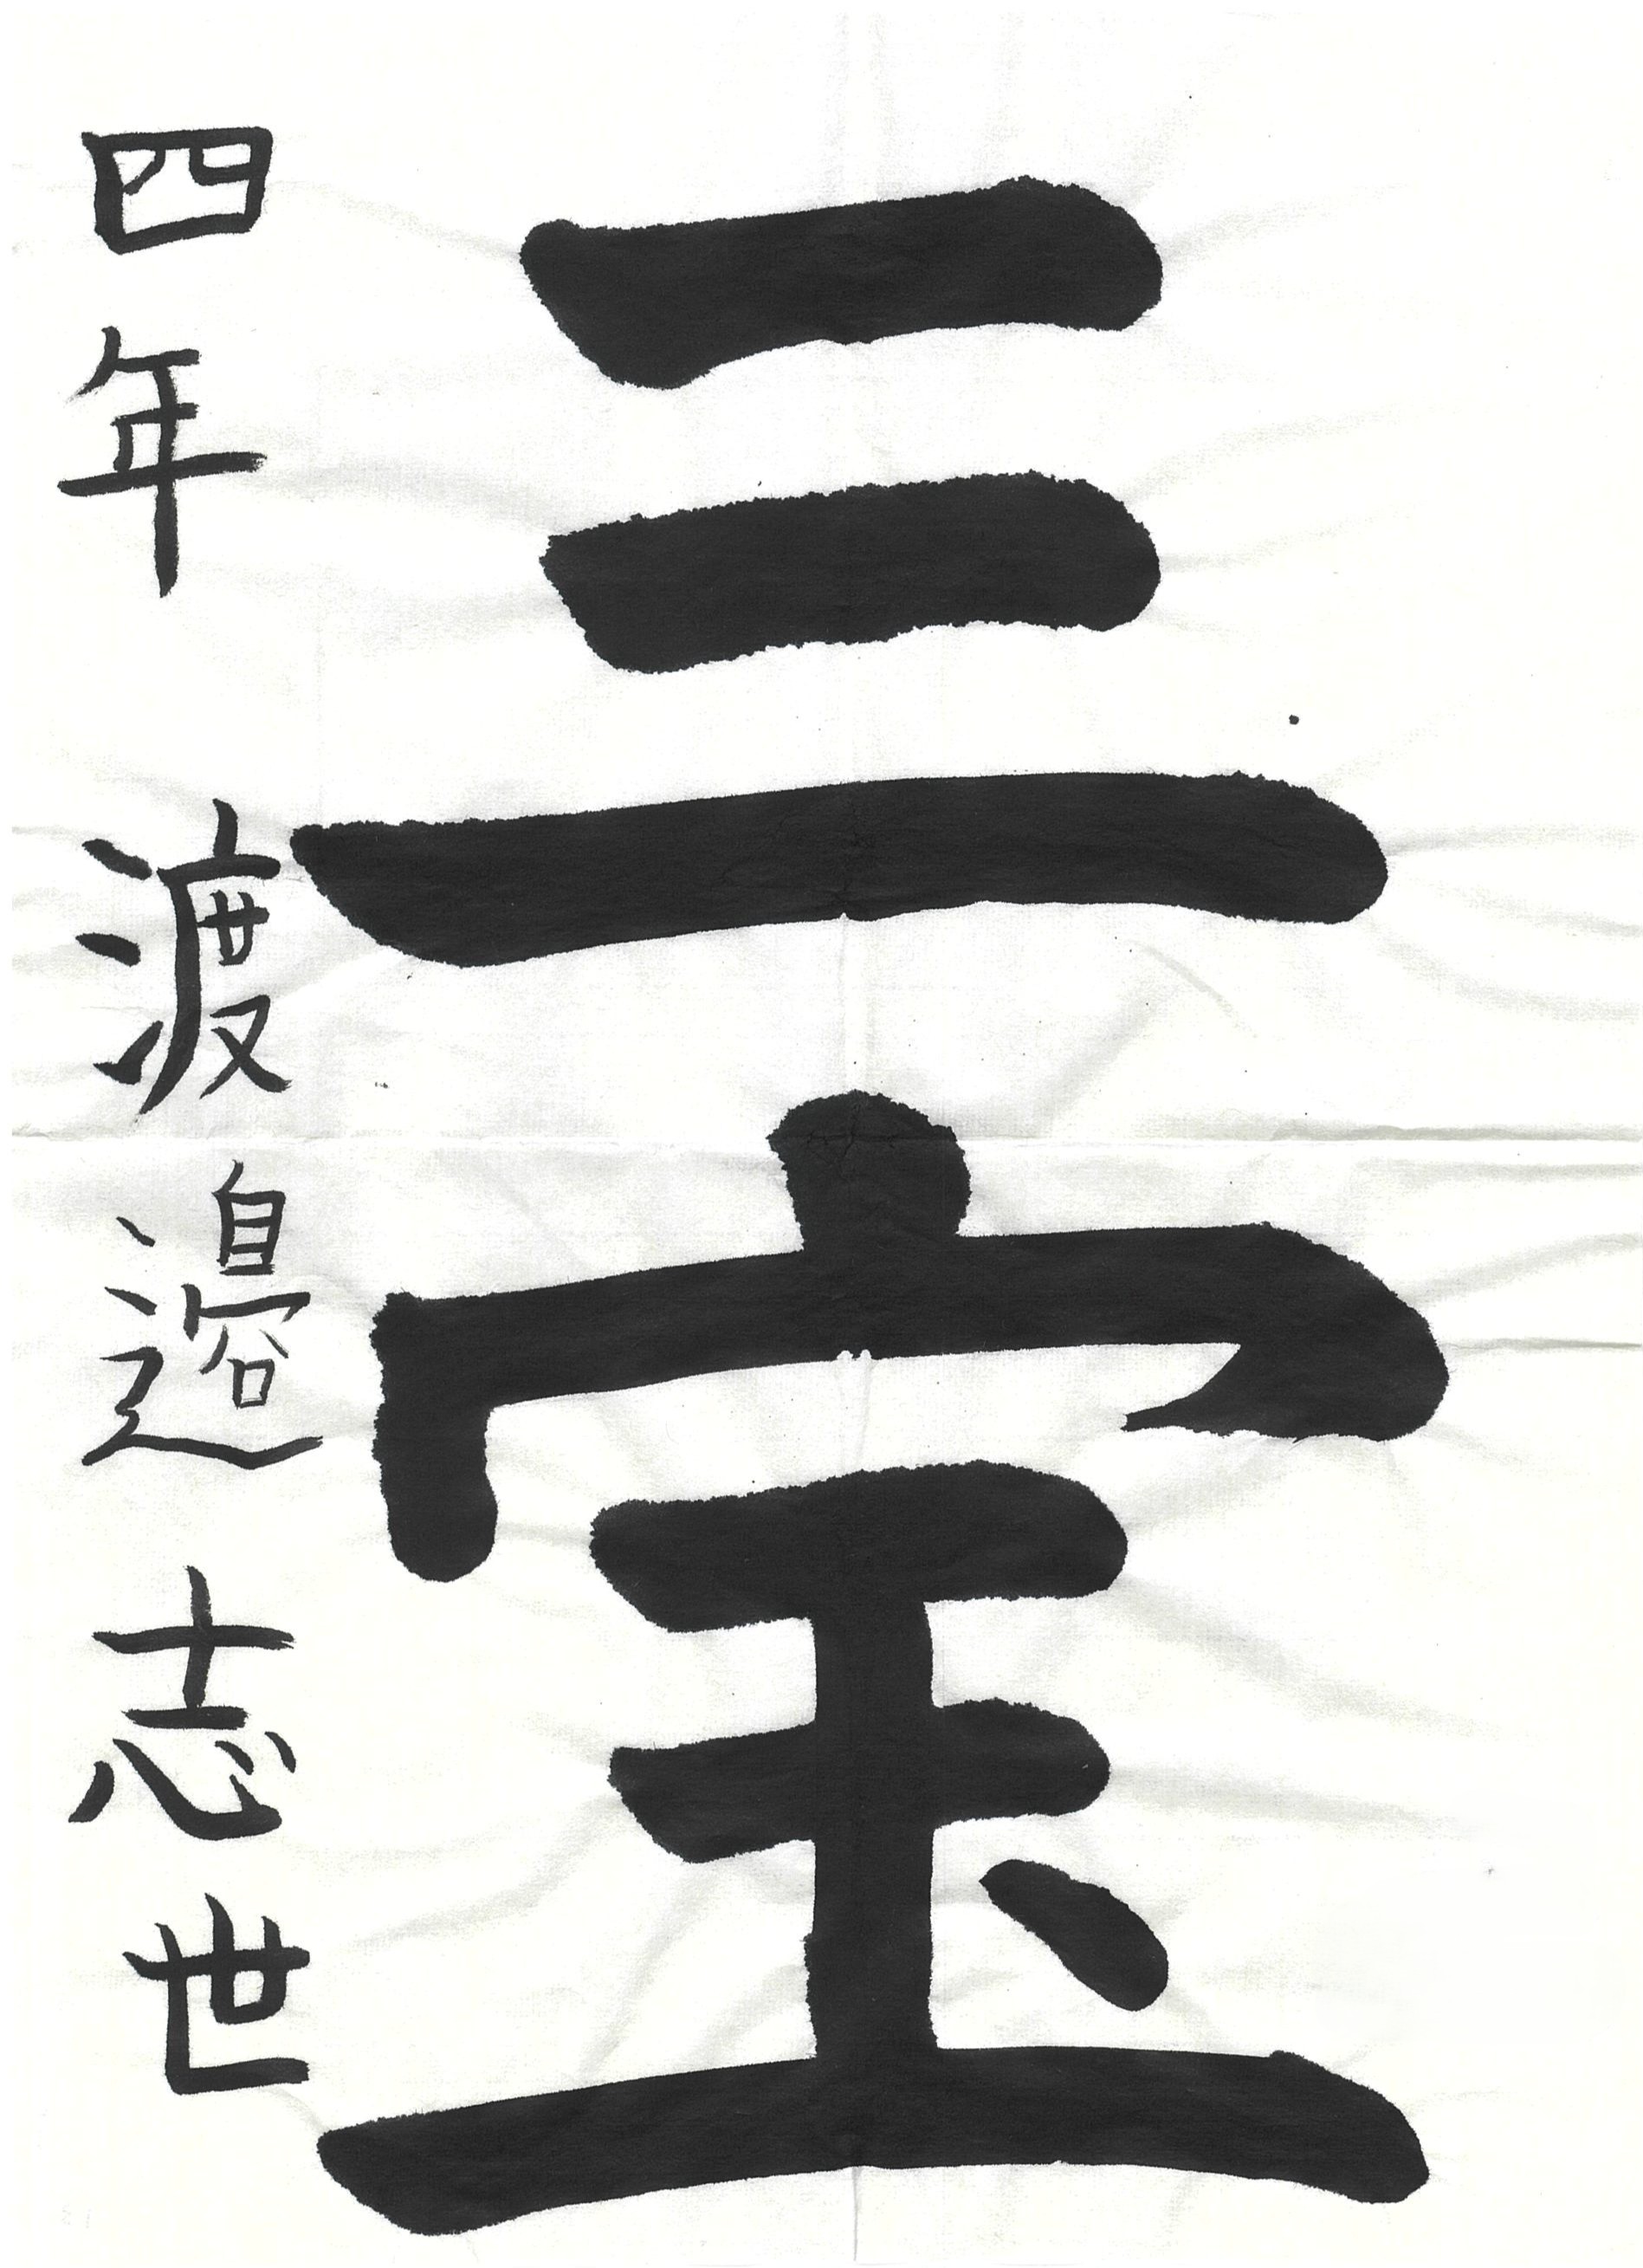 三宝
四年 渡邉志世